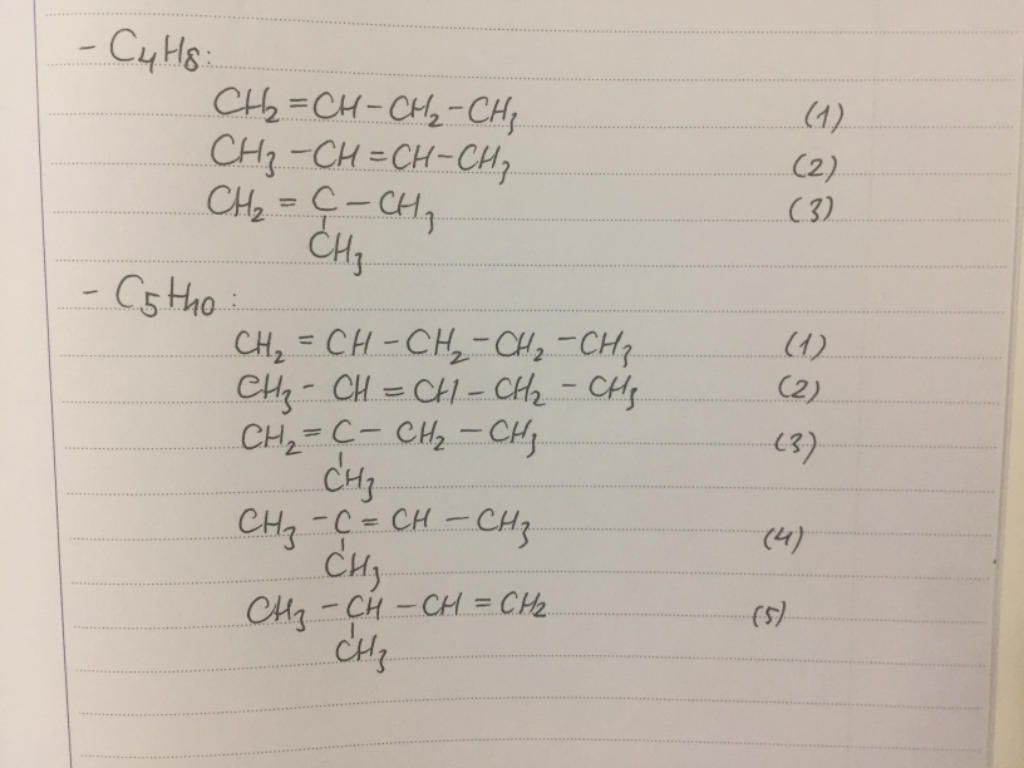 - C₄H₈:
CH₂ = CH - CH₂ - CH₃ (1)
CH₃ - CH = CH - CH₃ (2)
CH₂ = C - CH₃ (3)
CH₃
- C₅H₁₀:
CH₂ = CH - CH₂ - CH₂ - CH₃ (1)
CH₃ - CH = CH - CH₂ - CH₃ (2)
CH₂ = C - CH₂ - CH₃ (3)
CH₃
CH₃ - C = CH - CH₃ (4)
CH₃
CH₃ - CH - CH = CH₂ (5)
CH₃